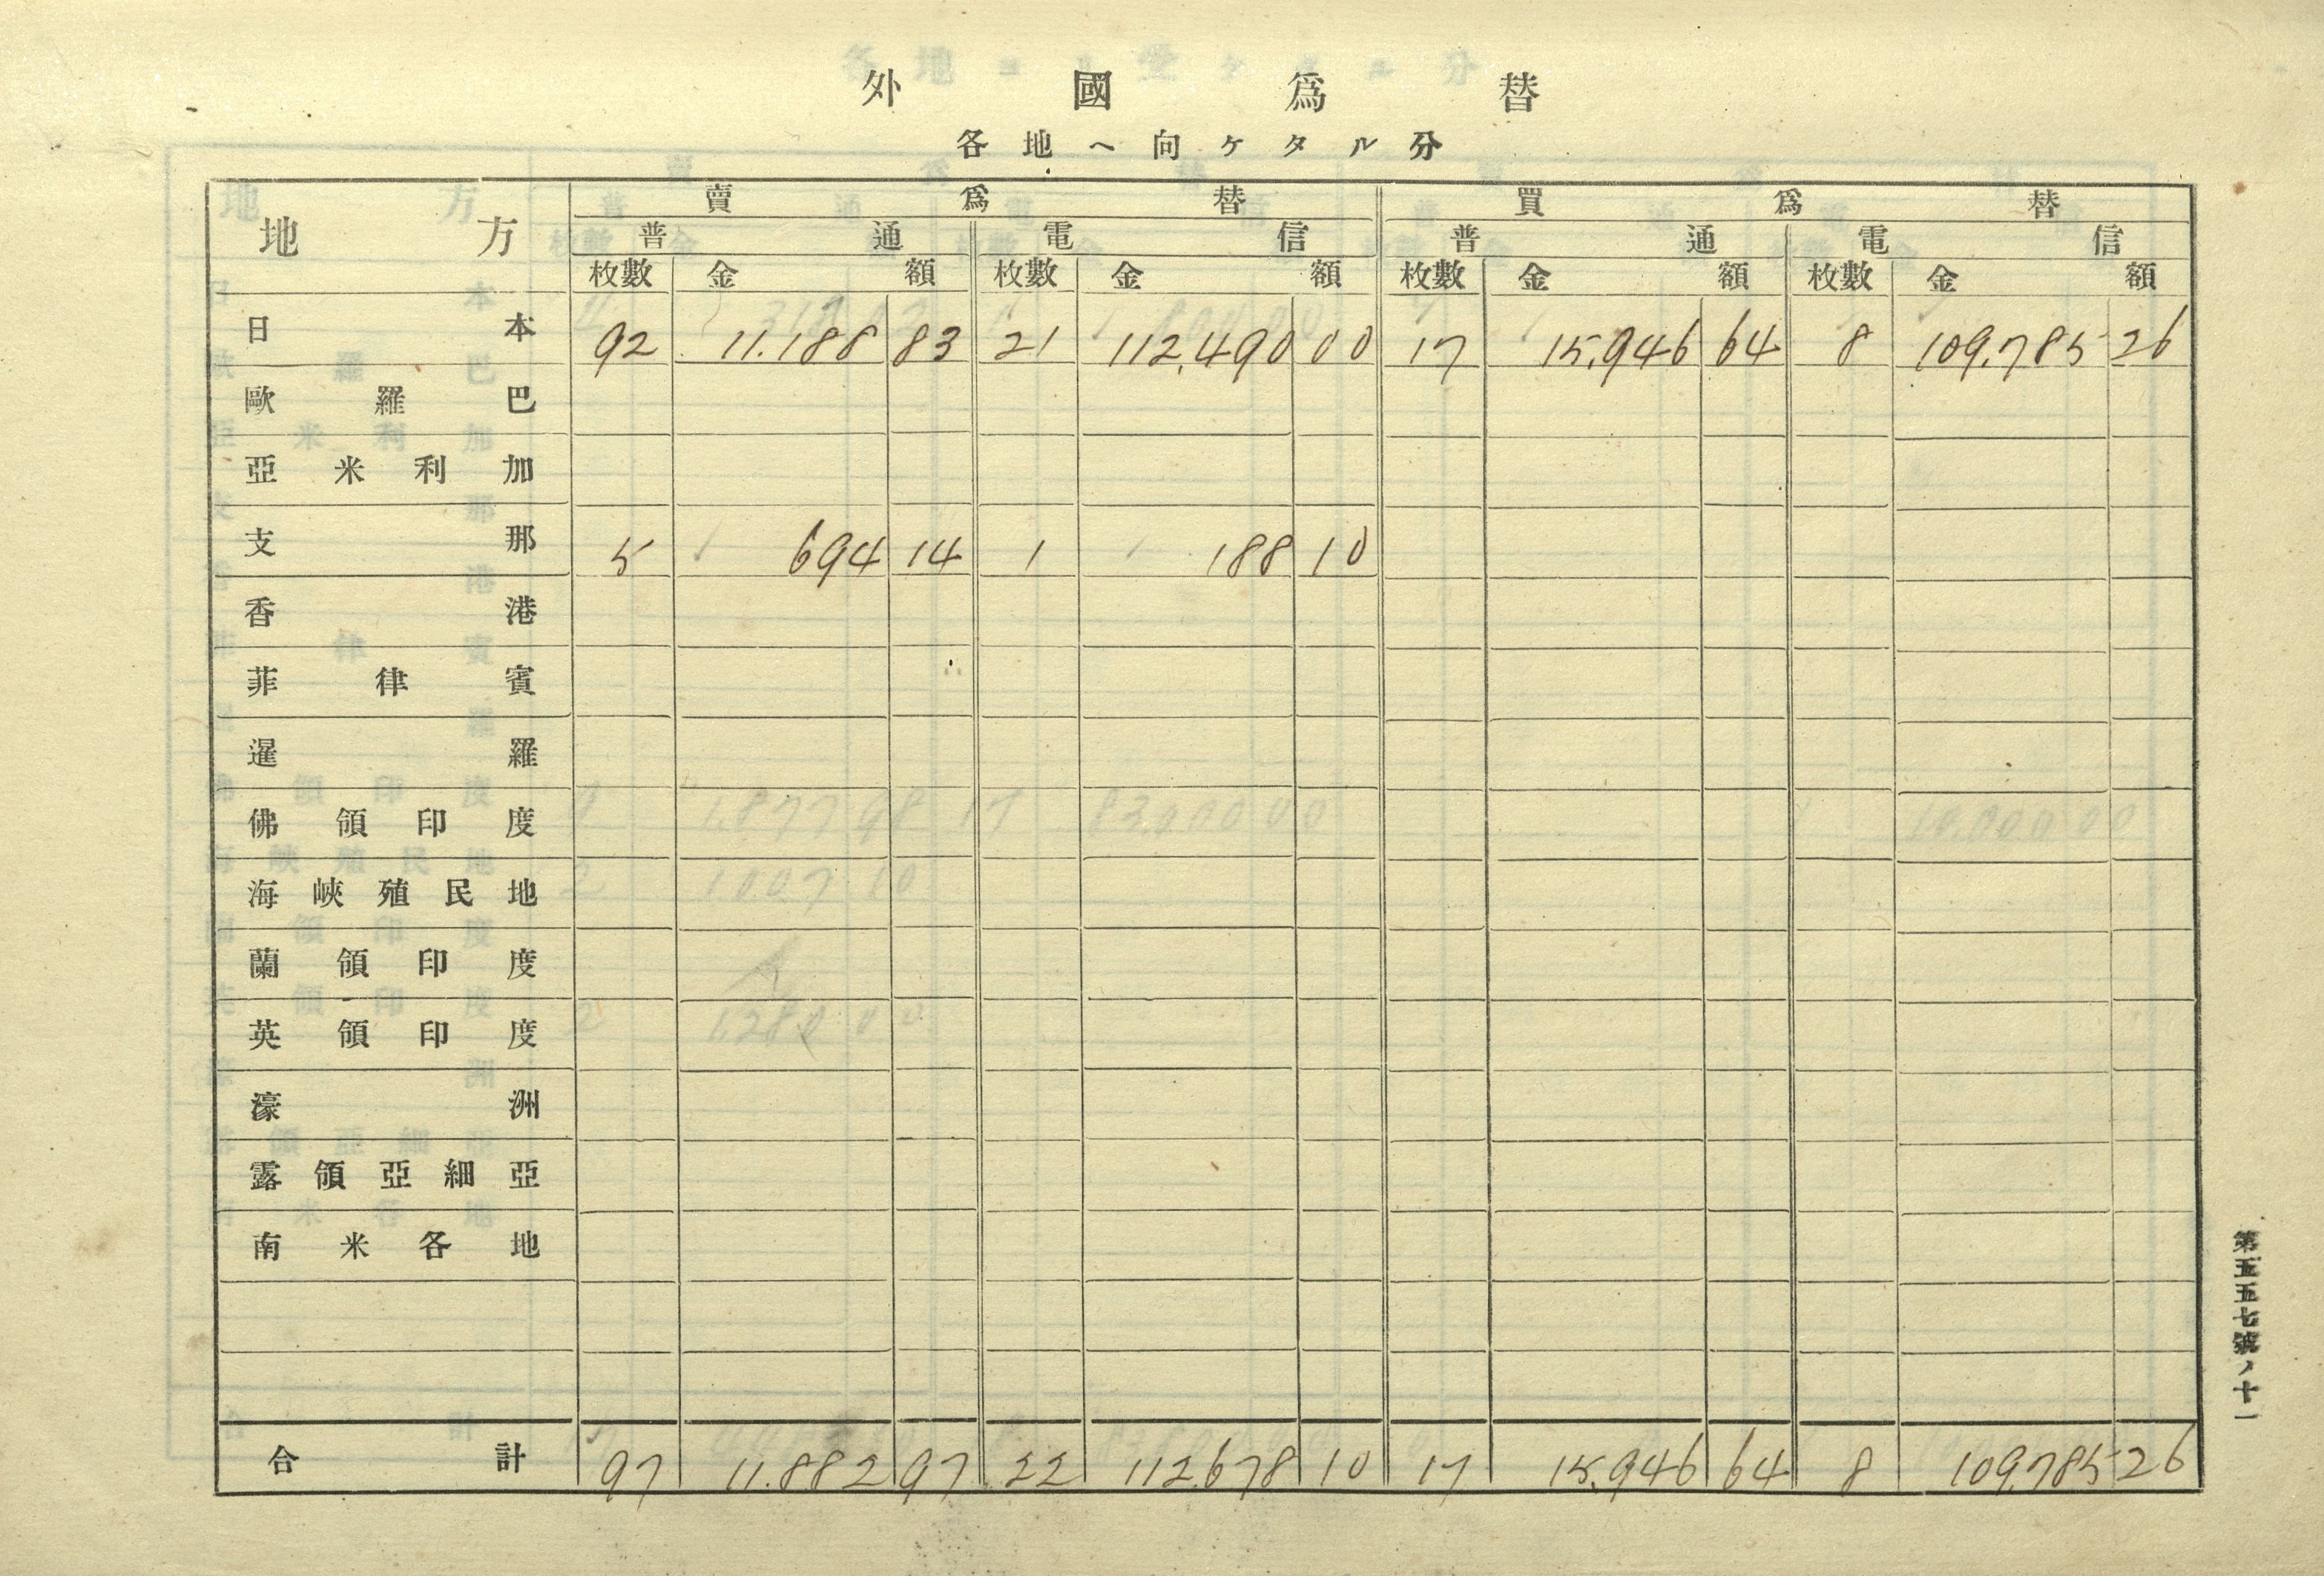 外國爲替
各地ヘ向ケタル分
地方 賣爲替 買爲替
普通 電信 普通 電信
枚數 金額 枚數 金額 枚數 金額 枚數 金額
日本 92 11.188 83 21 112,490 00 17 15,946 64 8 109,785 26
歐羅巴
亞米利加
支那 5 694 14 1 188 10
香港
菲律賓
暹羅
佛領印度
海峽殖民地
蘭領印度
英領印度
濠洲
露領亞細亞
南米各地
合計 97 11.882 97 22 112.678 10 17 15,946 64 8 109,785 26
第五五七號ノ十一